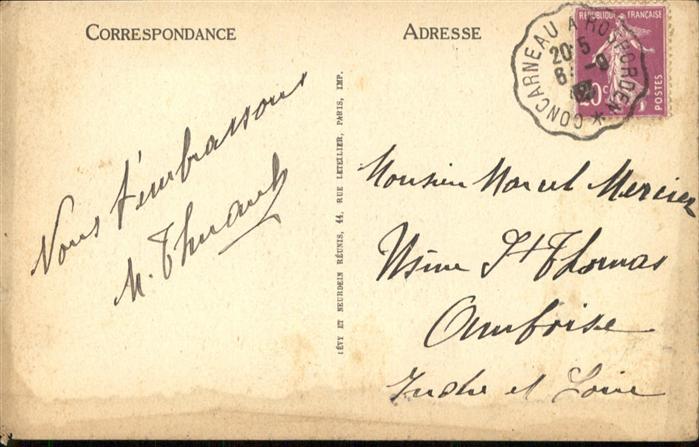 CORRESPONDANCE
ADRESSE
RÉPUBLIQUE FRANÇAISE
20c
POSTES
CONCARNEAU A ROSPORDEN *
20·5
Nous t'embrassons
M. Thuault
LÉVY ET NEURDEIN RÉUNIS, 44, RUE LETELLIER, PARIS, IMP.
Monsieur Marcel Mercier
Usine St Thomas
Amboise
Indre et Loire